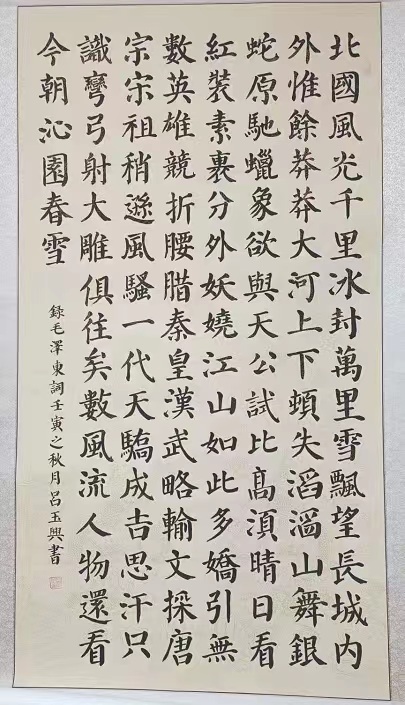 北國風光千里冰封萬里雪飄望長城内
外惟餘莽莽大河上下頓失滔滔山舞銀
蛇原馳蠟象欲與天公試比高須晴日看
紅裝素裹分外妖嬈江山如此多嬌引無
數英雄競折腰腊秦皇漢武略輸文採唐
宗宋祖稍遜風騷一代天驕成吉思汗只
識彎弓射大雕俱往矣數風流人物還看
今朝沁園春雪
錄毛澤東詞壬寅之秋月呂玉興書